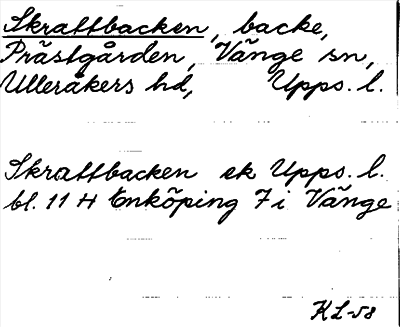 Skrattbacken, backe,
Prästgården, Vänge sn,
Ulleråkers hd, Upps. l.
Skrattbacken ek Upps. l.
bl. 11 H Enköping 7 i Vänge
KL-58